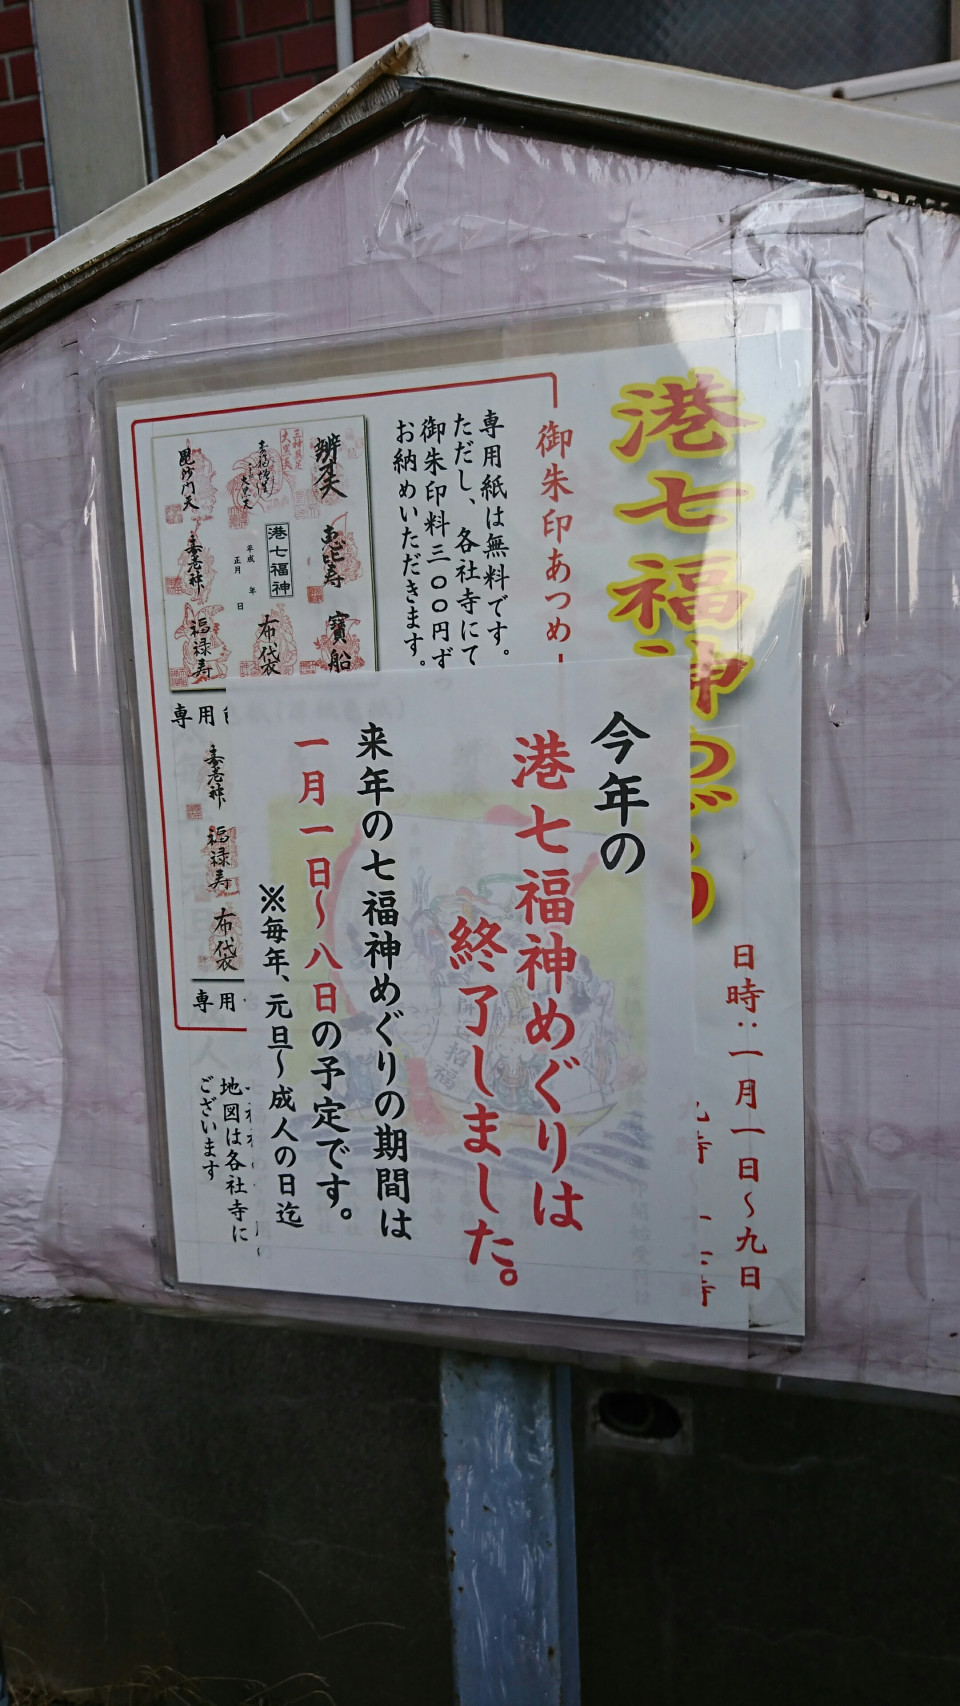 港七福神めぐり
日時：一月一日〜九日
御朱印あつめ
専用紙は無料です。
ただし、各社寺にて
御朱印料三〇〇円ず
お納めいただきます。
辨才天
恵比寿
寳船
大黒天
港七福神
平成 年
正月 日
布袋
毘沙門天
寿老神
福禄寿
専用
寿老神
福禄寿
布袋
専用
今年の
港七福神めぐりは
終了しました。
来年の七福神めぐりの期間は
一月一日〜八日の予定です。
※毎年、元旦〜成人の日迄
地図は各社寺に
ございます
開運招福